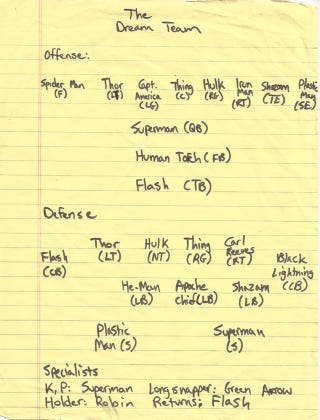 The
Dream Team
Offense:
Spider Man Thor Capt. America Thing Hulk Iron Man Shazam Plastic Man
(F) (LT) (LG) (C) (RG) (RT) (TE) (SE)
Superman (QB)
Human Torch (FB)
Flash (TB)
Defense
Flash Thor Hulk Thing Carl Reeves Black Lightning
(CB) (LT) (NT) (RG) (RT) (CB)
He-Man Apache Shazam
(LB) Chief (LB) (LB)
Plastic Superman
Man (S) (S)
Specialists
K, P: Superman Longsnapper: Green Arrow
Holder: Robin Returns: Flash